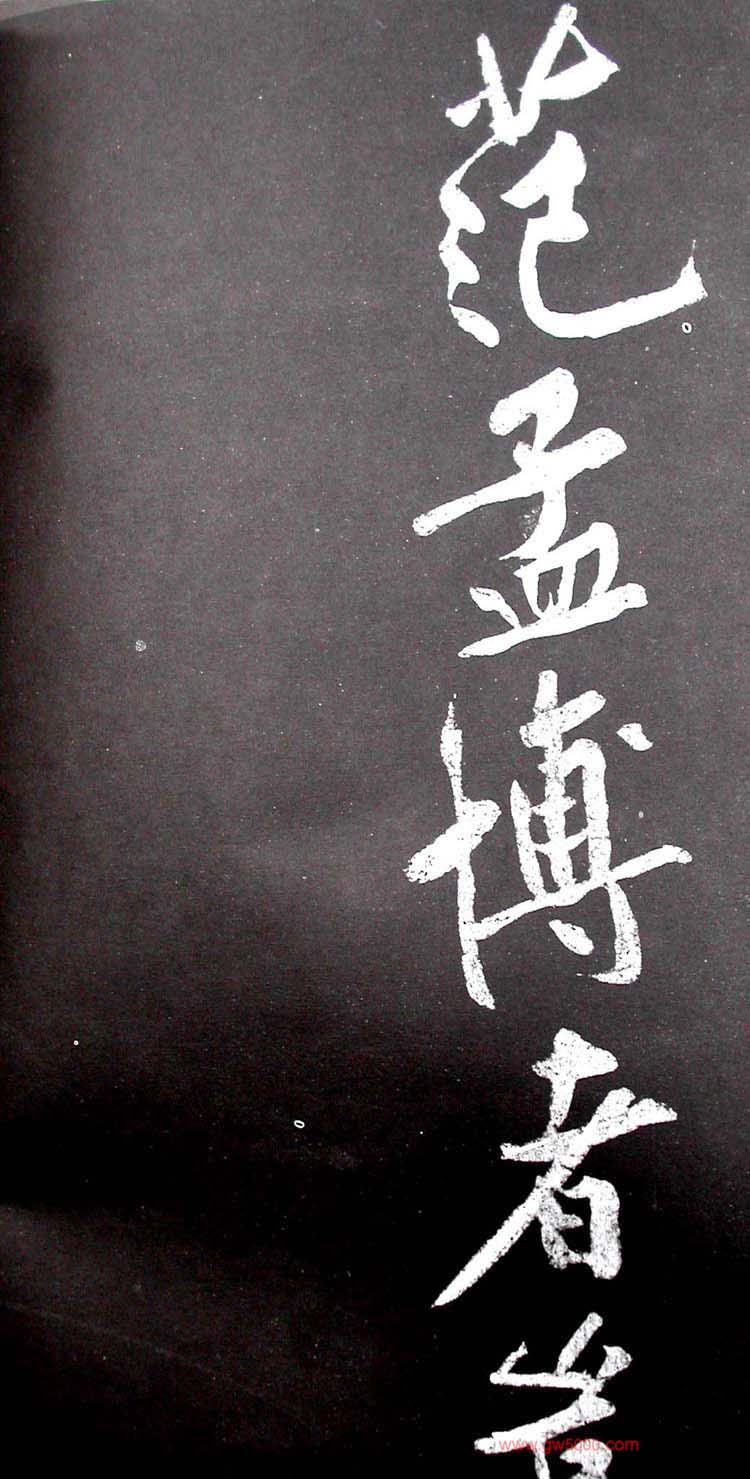 范孟博者
www.gw5000.com